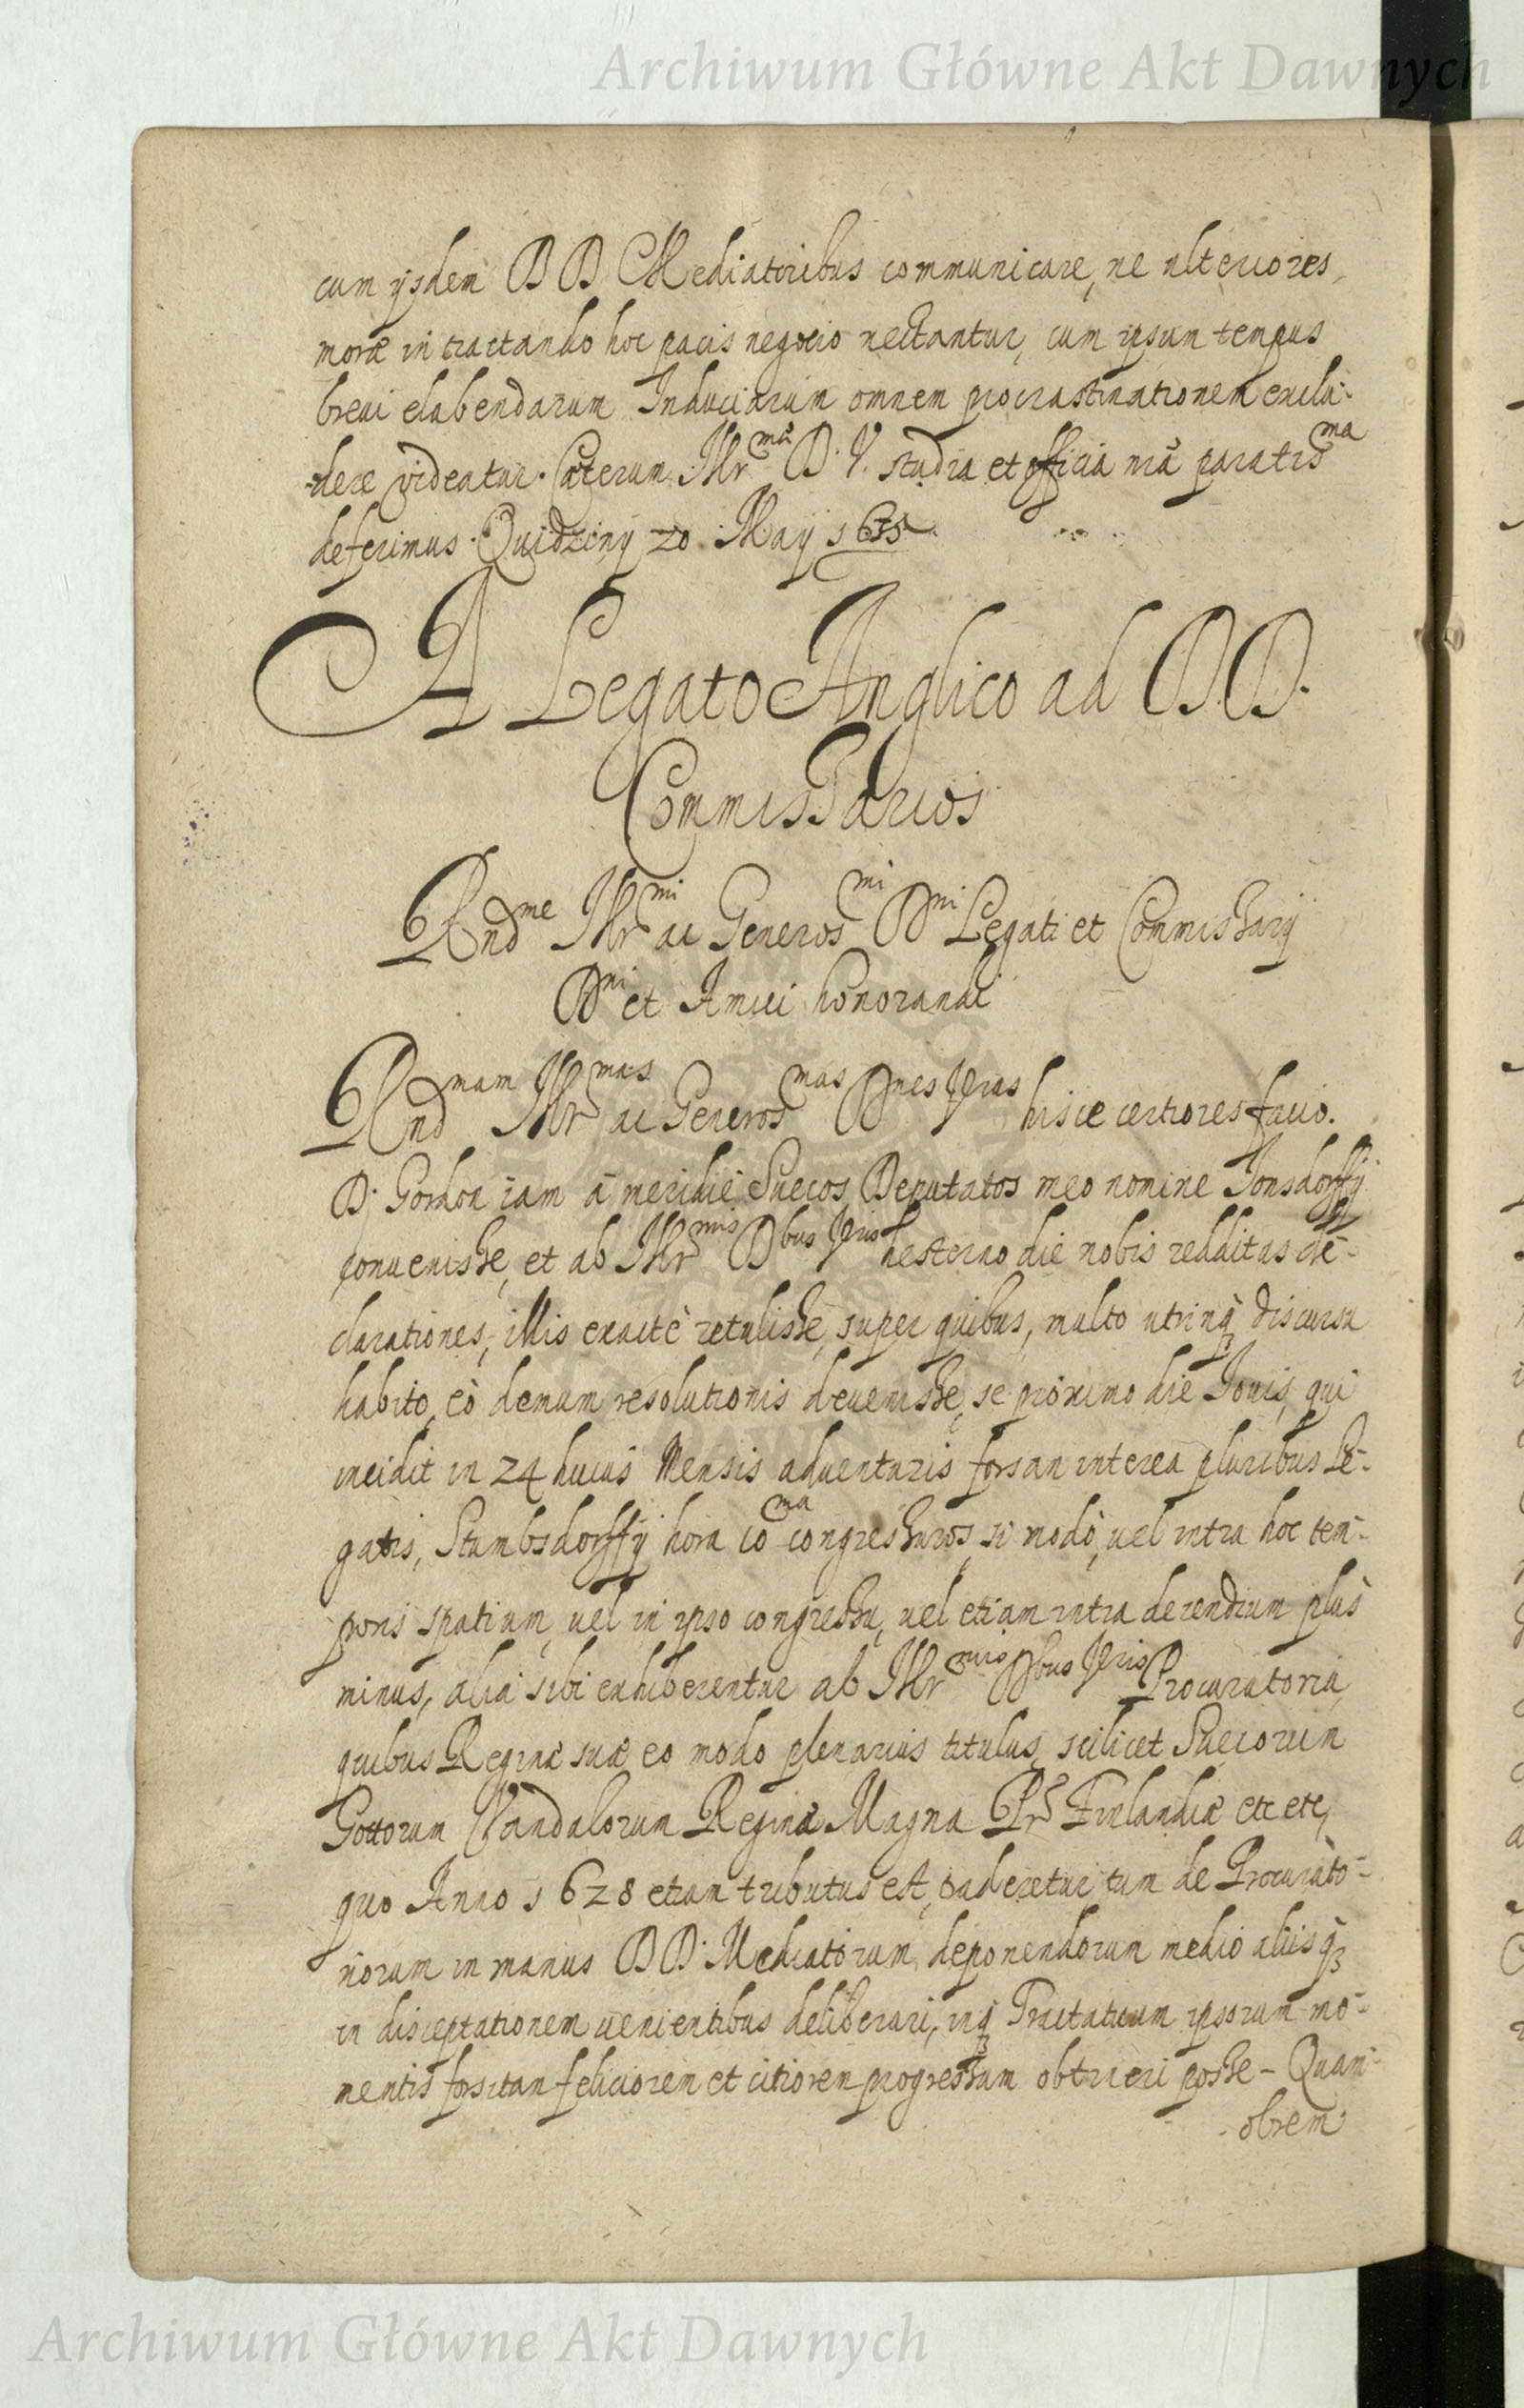 Archiwum Główne Akt Dawnych
cum ijsdem DD Mediatoribus communicare, ne ulteriores
moræ in tractando hoc pacis negocio nectantur, cum ipsum tempus
breui elabendarum Induciarum omnem procrastinationem exclu-
dere videatur. Cæterum Illr^mæ D. V. studia et officia nrã paratis^ma
deferimus. Quidziny 20 Maij 1635
A Legato Anglico ad DD.
Commissarios
Rnd^me Illr^mi ac Generos^mi D^ni Legati et Commissarij
D^ni et Amici honorandi
Rnd^mam Illr^mas ac Generos^mas D^nes Vras hisce certiores facio.
D. Gordon iam à meridie Suecos Deputatos meo nomine Jonsdorffij
conuenisse, et ab Illr^mis D^bus Vris hesterno die nobis redditas de-
clarationes, illis exactè retulisse, super quibus, multo utrinq; discursu
habito, eò demum resolutionis deuenisse, se proximo die Jouis, qui
incidit in 24 huius Mensis aduenturis forsan interea pluribus Le-
gatis, Stumbsdorffij hora 10^ma congressuros, si modò, uel intra hoc tem-
poris spatium, uel in ipso congressu, uel etiam intra decendium plus
minus, alia sibi exhiberentur ab Illr^mis D^bus Vris Procuratoria,
quibus Reginæ suæ eo modo plenarius titulus, scilicet Suecorum
Gottorum Vandalorum Reginæ Magnæ Pr^s Finlandiæ etc etc,
quo Anno 1628 etiam tributus est, daderetur tum de Procurato-
riorum in manus DD. Mediatorum deponendorum medio alijsq;
in disceptationem uenientibus deliberari, inq; Tractatuum ipsorum mo-
mentis forsitan feliciorem et citiorem progressum obtineri posse - Quam-
obrem
Archiwum Główne Akt Dawnych